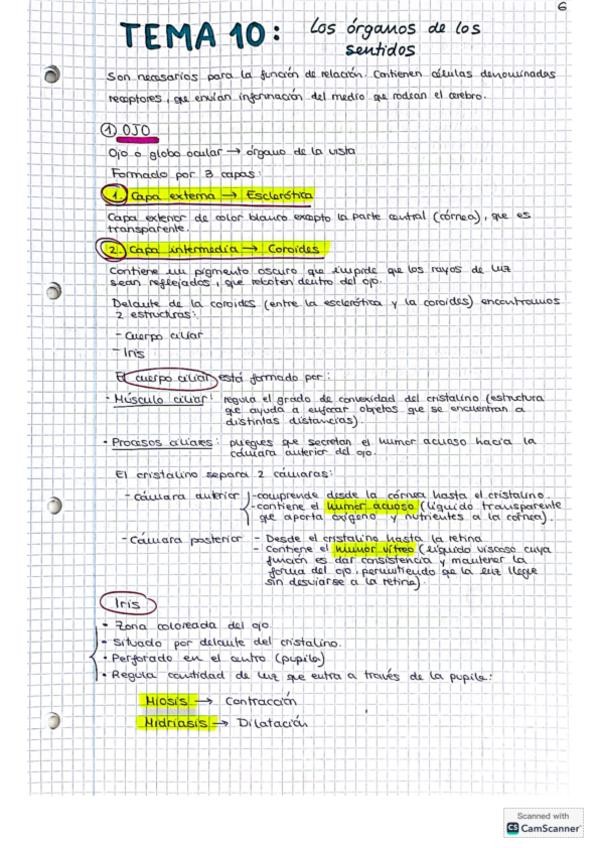 6
TEMA 10: Los órganos de los
sentidos
Son necesarios para la función de relación. Contienen células denominadas
receptores, que envían información del medio que rodean el cerebro.
1) OJO
Ojo o globo ocular → órgano de la vista
Formado por 3 capas:
1. Capa externa → Esclerótica
Capa exterior de color blanco excepto la parte central (córnea), que es
transparente.
2. Capa intermedia → Coroides
Contiene un pigmento oscuro que impide que los rayos de luz
sean reflejados, que reboten dentro del ojo.
Delante de la coroides (entre la esclerótica y la coroides) encontramos
2 estructuras:
- Cuerpo ciliar
- Iris
El cuerpo ciliar está formado por:
· Músculo ciliar: regula el grado de convexidad del cristalino (estructura
que ayuda a enfocar objetos que se encuentran a
distintas distancias).
· Procesos ciliares: pliegues que secretan el humor acuoso hacia la
cámara anterior del ojo.
El cristalino separa 2 cámaras:
- Cámara anterior - comprende desde la córnea hasta el cristalino.
- contiene el humor acuoso (líquido transparente
que aporta oxígeno y nutrientes a la córnea).
- Cámara posterior - Desde el cristalino hasta la retina
- Contiene el humor vítreo (líquido viscoso cuya
función es dar consistencia y mantener la
forma del ojo, permitiendo que la luz llegue
sin desviarse a la retina).
Iris
· Zona coloreada del ojo.
· Situado por delante del cristalino.
· Perforado en el centro (pupila)
· Regula cantidad de luz que entra a través de la pupila:
Miosis → Contracción
Midriasis → Dilatación
Scanned with
CS CamScanner